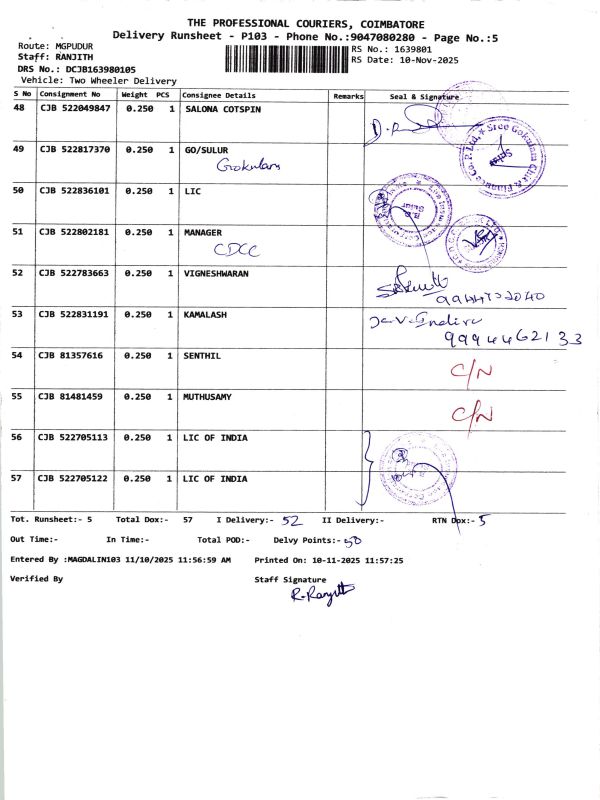 THE PROFESSIONAL COURIERS, COIMBATORE
Delivery Runsheet - P103 - Phone No.:9047080280 - Page No.:5
Route: MGPUDUR
RS No.: 1639801
Staff: RANJITH
RS Date: 10-Nov-2025
DRS No.: DCJB163980105
Vehicle: Two Wheeler Delivery
S No Consignment No Weight PCS Consignee Details Remarks Seal & Signature
48 CJB 522049847 0.250 1 SALONA COTSPIN
49 CJB 522817370 0.250 1 GO/SULUR
Gokulam
Co. P. Ltd. * Sree Gokulam Chit & Finance
Sulur
50 CJB 522836101 0.250 1 LIC
51 CJB 522802181 0.250 1 MANAGER
CDCC
52 CJB 522783663 0.250 1 VIGNESHWARAN
53 CJB 522831191 0.250 1 KAMALASH
9994462133
54 CJB 81357616 0.250 1 SENTHIL C/N
55 CJB 81481459 0.250 1 MUTHUSAMY C/N
56 CJB 522705113 0.250 1 LIC OF INDIA
57 CJB 522705122 0.250 1 LIC OF INDIA
Tot. Runsheet:- 5 Total Dox:- 57 I Delivery:- 52 II Delivery:- RTN Dox:- 5
Out Time:- In Time:- Total POD:- Delvy Points:- 50
Entered By :MAGDALIN103 11/10/2025 11:56:59 AM Printed On: 10-11-2025 11:57:25
Verified By Staff Signature
R. Ranjith